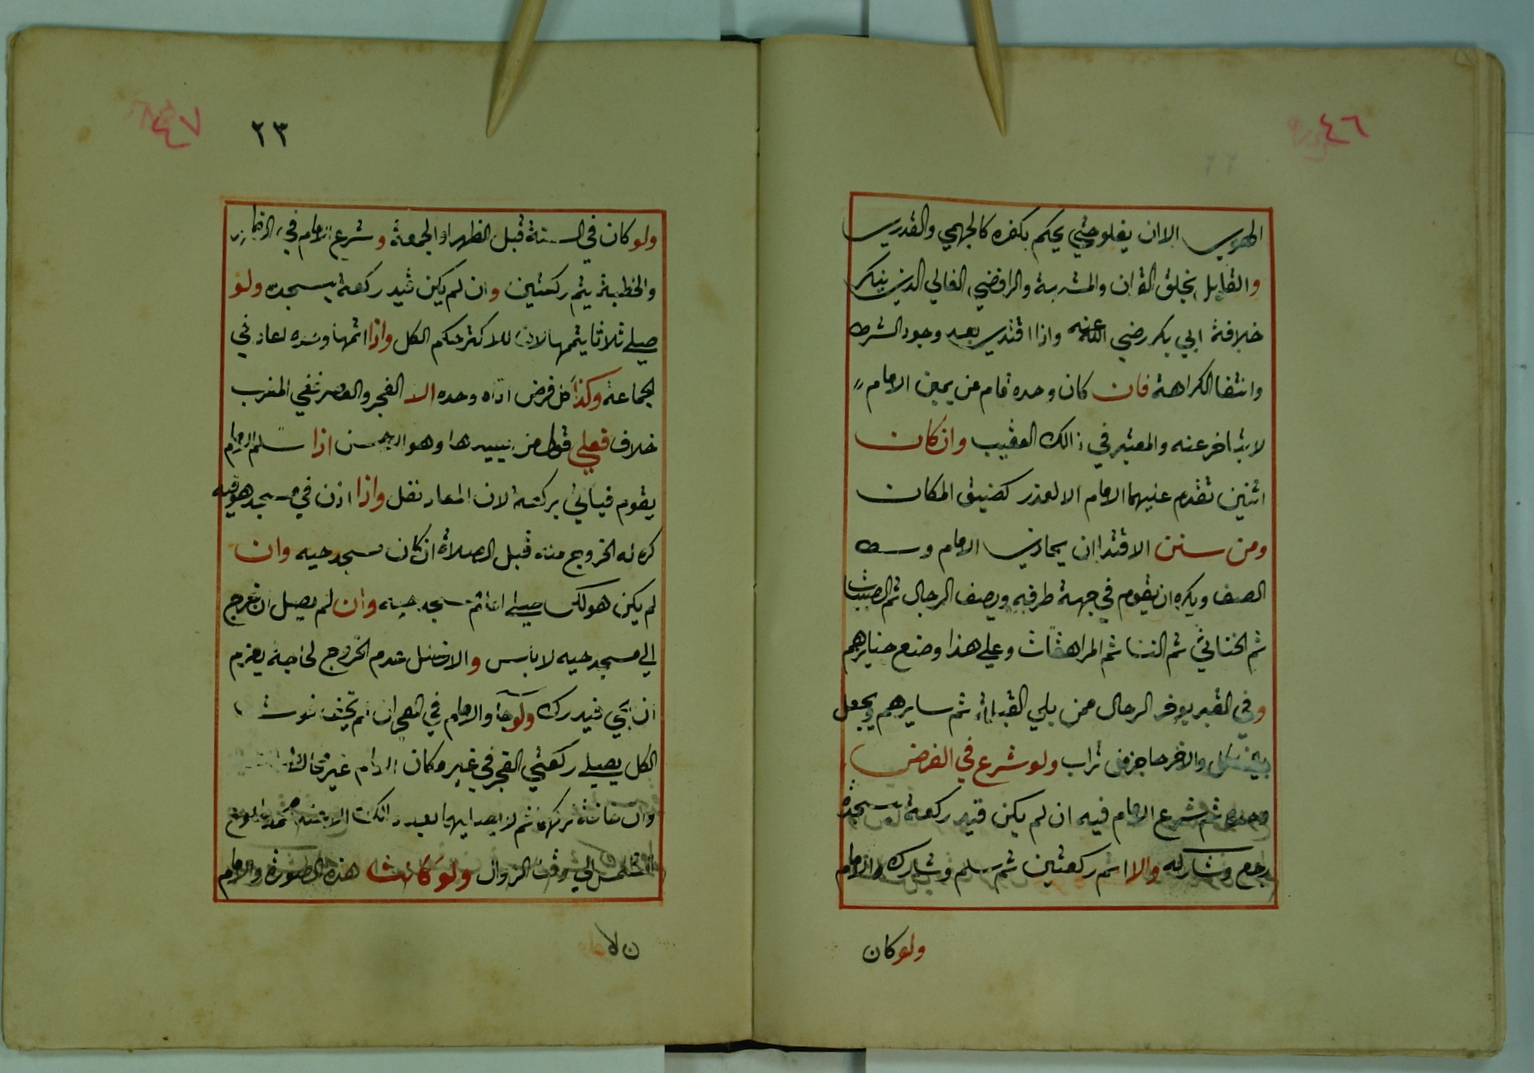 ٤٦
الهوي الا ان يغلو حتي يحكم بكفره كالجهمي والقدري
والقايل بخلق القران والمشبهة والرافضي الغالي الذي ينكر
خلافة ابي بكر رضي الله عنه واذا اقتدي بعد وجود الشرط
وانتفا الكراهة فان كان وحده قام عن يمين الامام
لا يتاخر عنه والمعتبر في ذالك العقيب وان كان
اثنين تقدم عليهما الامام الا لعذر كضيق المكان
ومن سنن الاقتدا ان يحاذي الامام وسط
الصف ويكره ان يقوم في جهة طرفيه ويصف الرجال ثم الصبيان
ثم الخناثي ثم النسا ثم المراهقات وعلي هذا وضع جنايزهم
وفي القبر يوخر الرجال ممن يلي القبلة ثم سايرهم ويجعل
بين كل والاخر حاجز من تراب ولو شرع في الفرض
وحده ثم شرع الامام فيه ان لم يكن قيد ركعة بسجدة
يدع وشاركه والا اتم ركعتين ثم سلم وشاركه والامام
ولو كان
٤٧
٢٣
ولو كان في السنة قبل الظهر او الجمعة وشرع الامام في
والخطبة يتم ركعتين وان لم يكن قيد ركعة بسجدة ولو
صلي ثلاثا يتمها لان للاكثر حكم الكل واذا اتمها وحده لعاد في
الجماعة وكذا كل فرض اداه وحده الا الفجر والعصر ففي المغرب
خلاف فعلي قول من يعيدها وهو الاحسن اذا سلم الامام
يقوم فياتي بركعة لان المعاد نفل واذا اذن في مسجد هو فيه
كره له الخروج منه قبل الصلاة ان كان مسجد حيه وان
لم يكن هو لكن صلي امام مسجد حيه وان لم يصل ان خرج
الي مسجد حيه لا باس والافضل عدم الخروج لحاجة يعزم
ان يجي فيدرك ولو جا والامام في الفجر ان لم يخف فوت
الكل يصلي ركعتي الفجر في غير مكان الامام غير مخالط
وان خافه تركها ثم لا يعد ايها بعد ذالك الا عند محمد
الي وقت الزوال ولو كانت هذه الصورة والامام